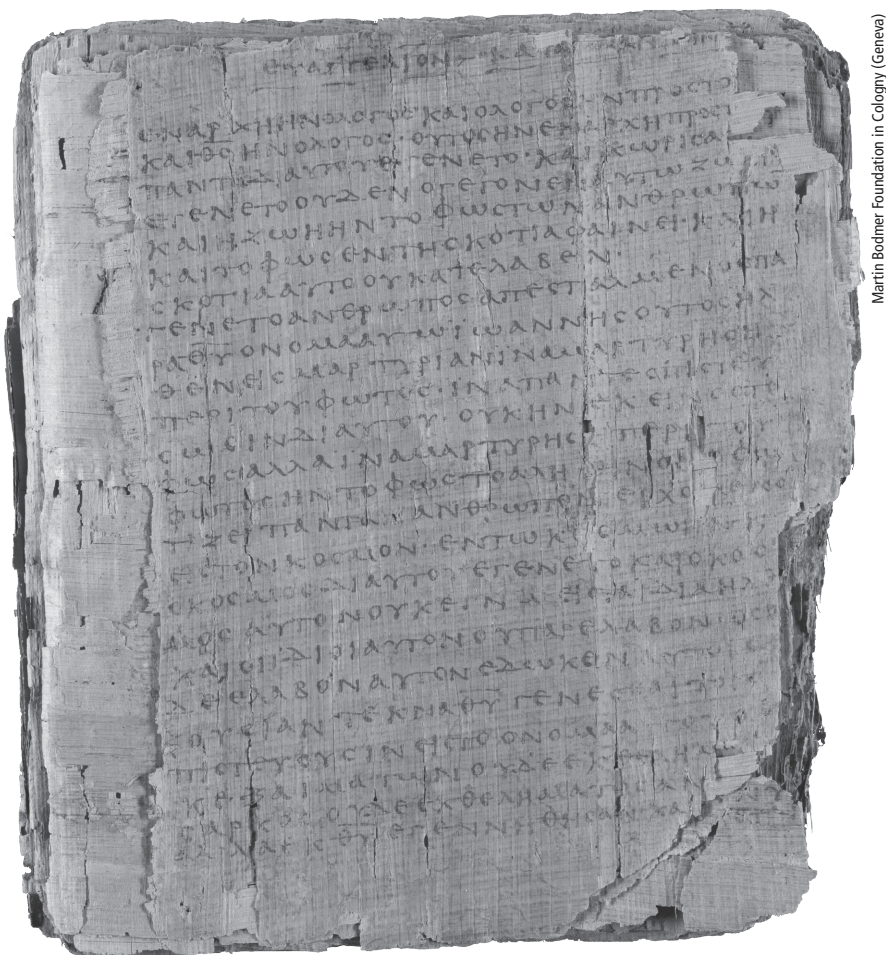 ΕΥΑΓΓΕΛΙΟΝ ΚΑΤΑ
ΕΝΑΡΧΗΗΝΟΛΟΓΟϹΚΑΙΟΛΟΓΟϹΗΝΠΡΟϹΤΟ
ΚΑΙΘϹΗΝΟΛΟΓΟϹ·ΟΥΤΟϹΗΝΕΝΑΡΧΗΠΡΟϹΤ
ΠΑΝΤΑΔΙΑΥΤΟΥΕΓΕΝΕΤΟ·ΚΑΙΧΩΡΙϹΑ
ΕΓΕΝΕΤΟΟΥΔΕΝΟΓΕΓΟΝΕΝΕΝΑΥΤΩΖΩ
ΚΑΙΗΖΩΗΗΝΤΟΦΩϹΤΩΝΑΝΘΡΩΠΩ
ΚΑΙΤΟΦΩϹΕΝΤΗϹΚΟΤΙΑΦΑΙΝΕΙ·ΚΑΙΗ
ϹΚΟΤΙΑΑΥΤΟΟΥΚΑΤΕΛΑΒΕΝ·
ΕΓΕΝΕΤΟΑΝΘΡΩΠΟϹΑΠΕϹΤΑΛΜΕΝΟϹΠΑ
ΡΑΘΥΟΝΟΜΑΑΥΤΩΪΩΑΝΝΗϹΟΥΤΟϹΗΛ
ΘΕΝΕΙϹΜΑΡΤΥΡΙΑΝΙΝΑΜΑΡΤΥΡΗϹΗ
ΠΕΡΙΤΟΥΦΩΤΟϹ·ΙΝΑΠΑΝΤΕϹΠΙϹΤΕΥ
ϹΩϹΙΝΔΙΑΥΤΟΥ·ΟΥΚΗΝΕΚΕΙΝΟϹΤΟ
ΦΩϹΑΛΛΑΙΝΑΜΑΡΤΥΡΗϹΗΠΕΡΙΤΟΥ
ΦΩΤΟϹΗΝΤΟΦΩϹΤΟΑΛΗΘΙΝΟΝ
ΤΙΖΕΙΠΑΝΤΑΑΝΘΡΩΠΟΝΕΡΧΟΜΕΝΟ
ΕΙϹΤΟΝΚΟϹΜΟΝ·ΕΝΤΩΚΟϹΜΩΗΝ
ΟΚΟϹΜΟϹΔΙΑΥΤΟΥΕΓΕΝΕΤΟΚΑΙΟΚΟϹ
ΜΟϹΑΥΤΟΝΟΥΚΕΓΝΩΕΙϹΤΑΙΔΙΑΗΛ
ΚΑΙΟΙΪΔΙΟΙΑΥΤΟΝΟΥΠΑΡΕΛΑΒΟΝ·ΟϹΟ
ΔΕΕΛΑΒΟΝΑΥΤΟΝΕΔΩΚΕΝΑΥΤΟΙϹ
ΞΟΥϹΙΑΝΤΕΚΝΑΘΥΓΕΝΕϹΘΑΙΤΟΙ
ΠΙϹΤΕΥΟΥϹΙΝΕΙϹΤΟΟΝΟΜΑ
ΕΞΑΙΜΑΤΩΝΟΥΔΕΕΚ
ϹΑΡΚΟϹΟΥΔΕΕΚΘΕΛΗΜΑΤΟϹΑ
ΑΛΛΑΕΚΘΥΕΓΕΝΝΗΘΗϹΑΝΚΑ
Martin Bodmer Foundation in Cologny (Geneva)